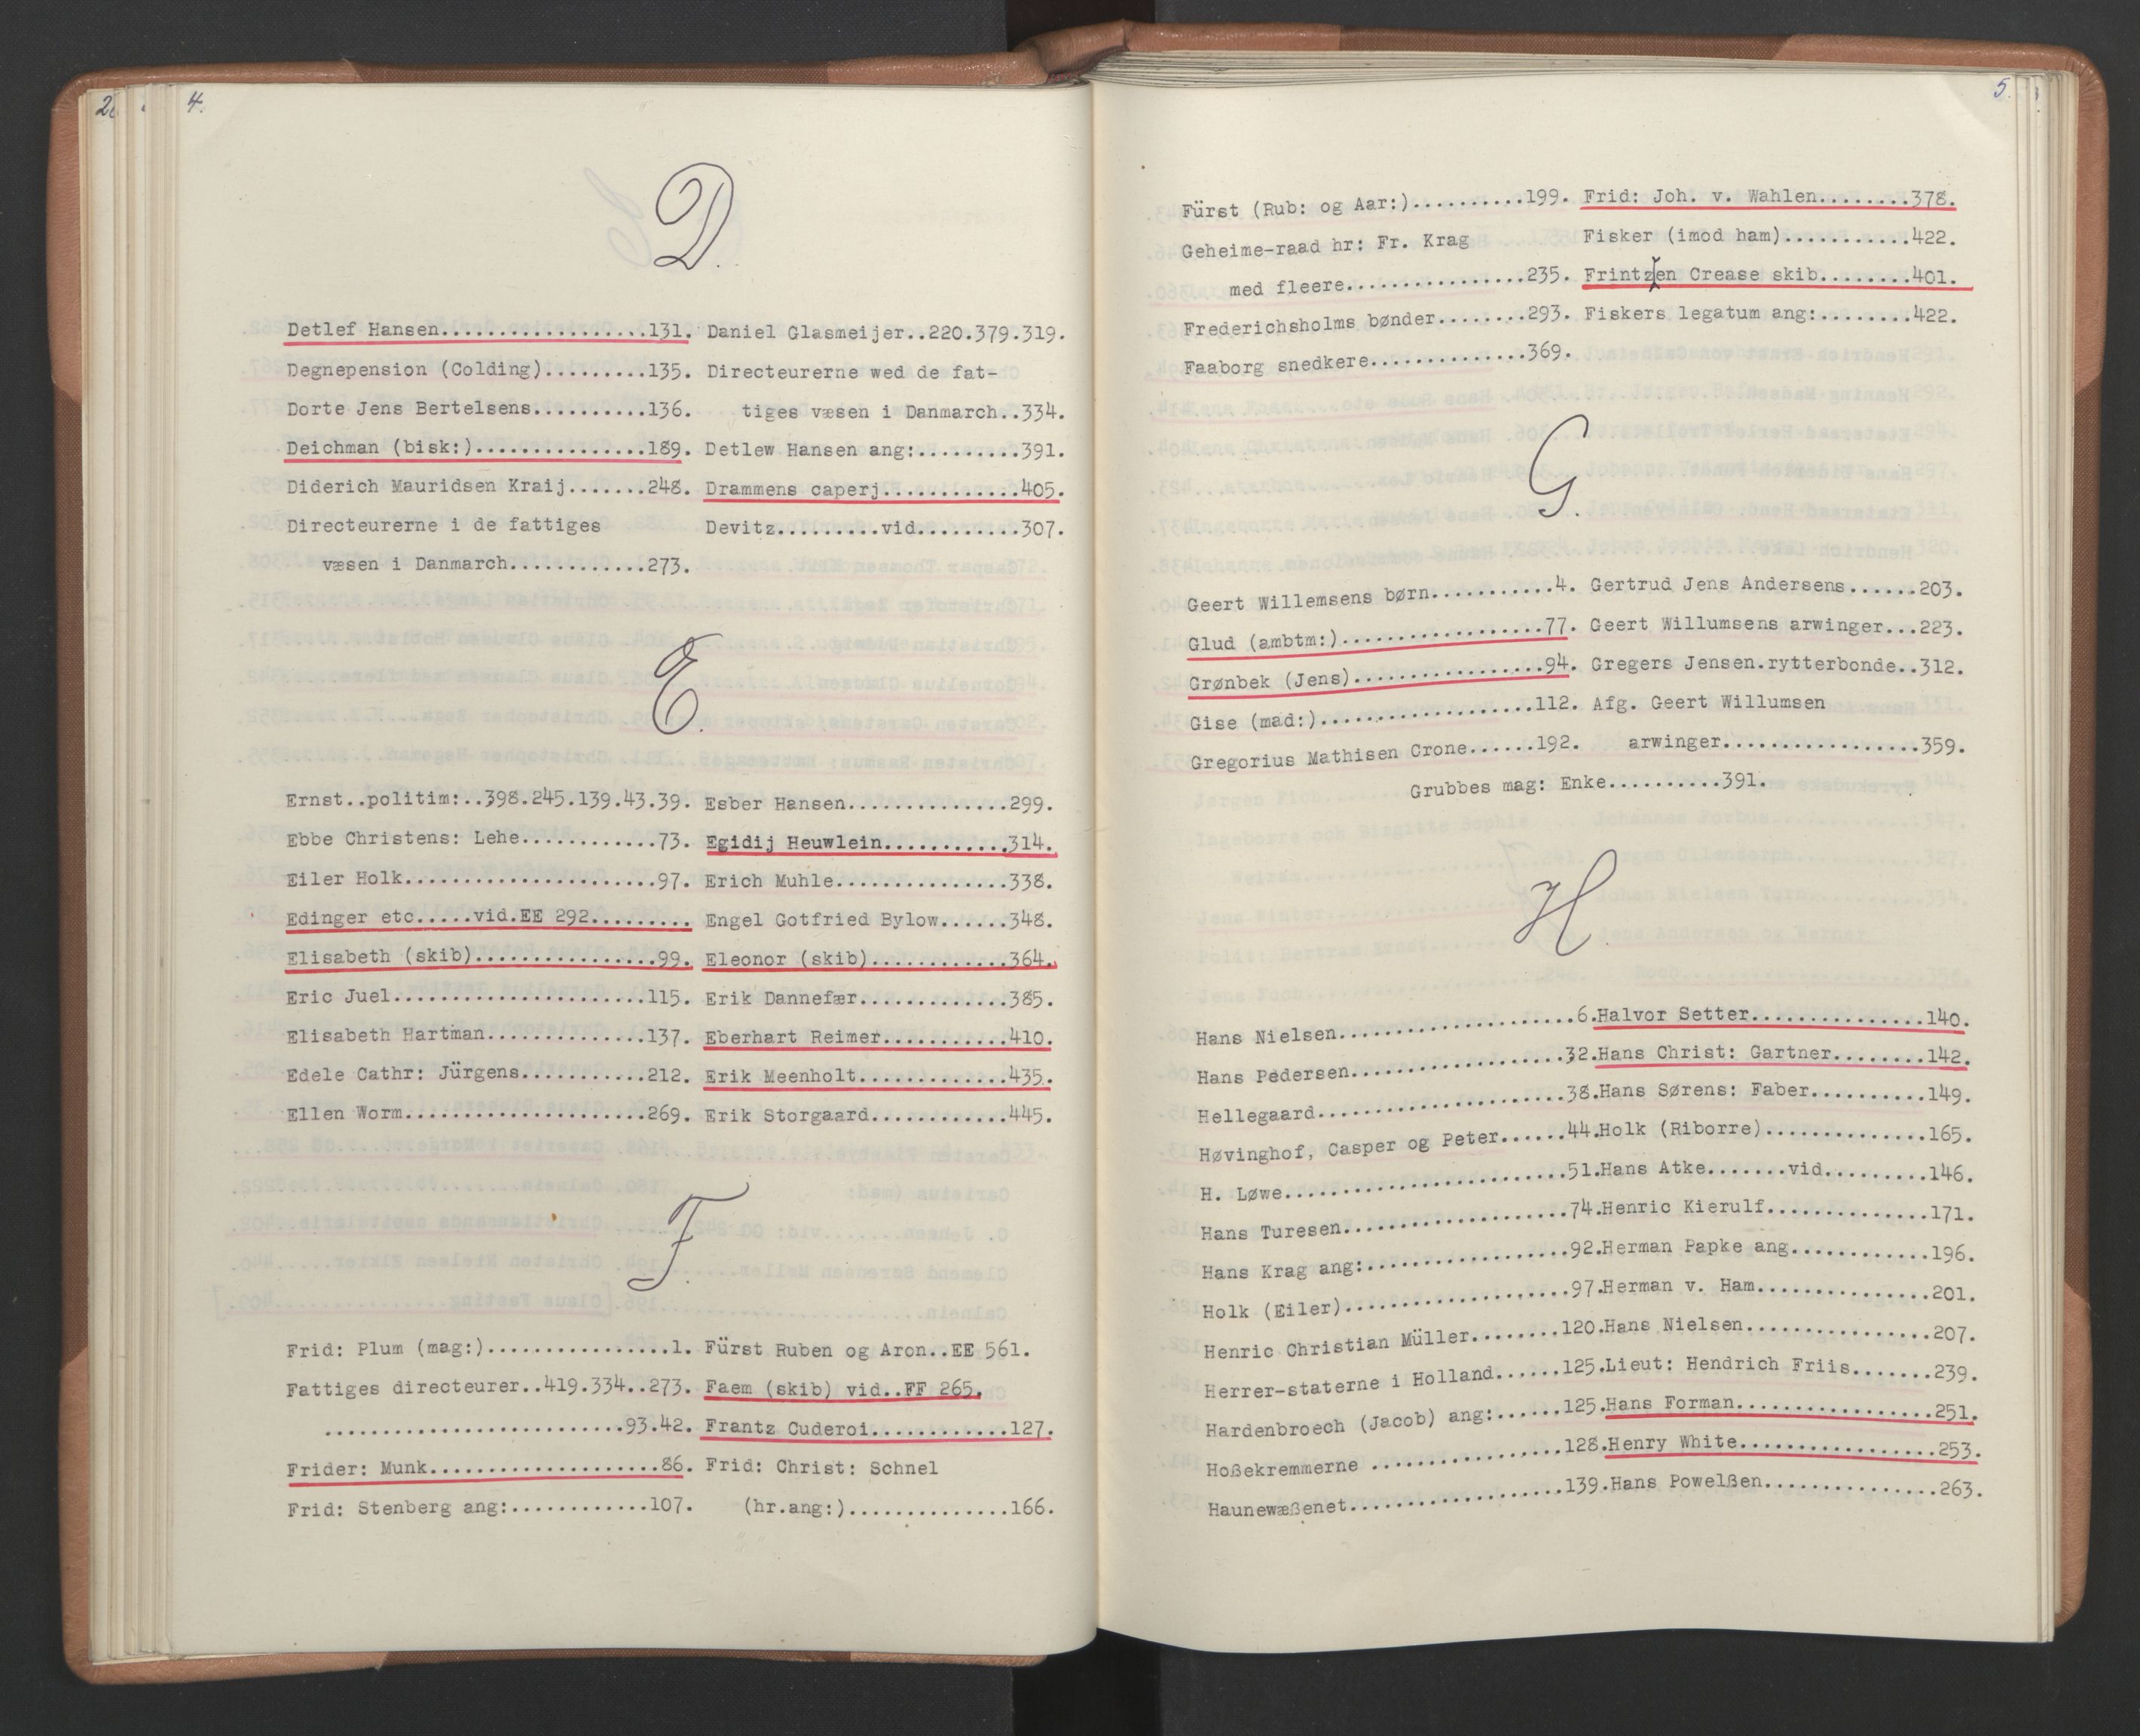 4.
D.
Detlef Hansen...................131.
Degnepension (Colding).........135.
Dorte Jens Bertelsens..........136.
Deichman (bisk:)...............189.
Diderich Mauridsen Kraij.......248.
Directeurerne i de fattiges
væsen i Danmarch............273.
Daniel Glasmeijer..220.379.319.
Directeurerne wed de fat-
tiges væsen i Danmarch..334.
Detlew Hansen ang:.........391.
Drammens caperj............405.
Devitz.........vid.........307.
E.
Ernst..politim:..398.245.139.43.39.
Ebbe Christens: Lehe............73.
Eiler Holk......................97.
Edinger etc.....vid.EE 292.........
Elisabeth (skib)................99.
Eric Juel......................115.
Elisabeth Hartman..............137.
Edele Cathr: Jürgens...........212.
Ellen Worm.....................269.
Esber Hansen..............299.
Egidij Heuwlein...........314.
Erich Muhle...............338.
Engel Gotfried Bylow......348.
Eleonor (skib)............364.
Erik Dannefær.............385.
Eberhart Reimer...........410.
Erik Meenholt.............435.
Erik Storgaard............445.
F.
Frid: Plum (mag:)................1.
Fattiges directeurer..419.334..273.
..........................93.42.
Frider: Munk....................86.
Frid: Stenberg ang:............107.
Fürst Ruben og Aron..EE 561.
Faem (skib) vid..FF 265.
Frantz Cuderoi............127.
Frid: Christ: Schnel
(hr.ang:)..............166.
5.
Fürst (Rub: og Aar:)..........199.
Geheime-raad hr: Fr. Krag
med fleere................235.
Frederichsholms bønder........293.
Faaborg snedkere..............369.
Frid: Joh. v. Wahlen........378.
Fisker (imod ham)...........422.
Frintzen Crease skib........401.
Fiskers legatum ang:........422.
G.
Geert Willemsens børn...........4.
Glud (ambtm:)..................77.
Grønbek (Jens).................94.
Gise (mad:)...................112.
Gregorius Mathisen Crone......192.
Gertrud Jens Andersens......203.
Geert Willumsens arwinger...223.
Gregers Jensen.rytterbonde..312.
Afg. Geert Willumsen
arwinger.................359.
Grubbes mag: Enke..........391.
H.
Hans Nielsen.....................6.
Hans Pedersen...................32.
Hellegaard......................38.
Høvinghof, Casper og Peter......44.
H. Løwe.........................51.
Hans Turesen....................74.
Hans Krag ang:..................92.
Holk (Eiler)....................97.
Henric Christian Müller........120.
Herrer-staterne i Holland......125.
Hardenbroech (Jacob) ang:......125.
Hoßekremmerne .................128.
Haunewæßenet...................139.
Halvor Setter...............140.
Hans Christ: Gartner........142.
Hans Sørens: Faber..........149.
Holk (Riborre)..............165.
Hans Atke.......vid.........146.
Henric Kierulf..............171.
Herman Papke ang............196.
Herman v. Ham...............201.
Hans Nielsen................207.
Lieut: Hendrich Friis.......239.
Hans Forman.................251.
Henry White.................253.
Hans Powelßen...............263.